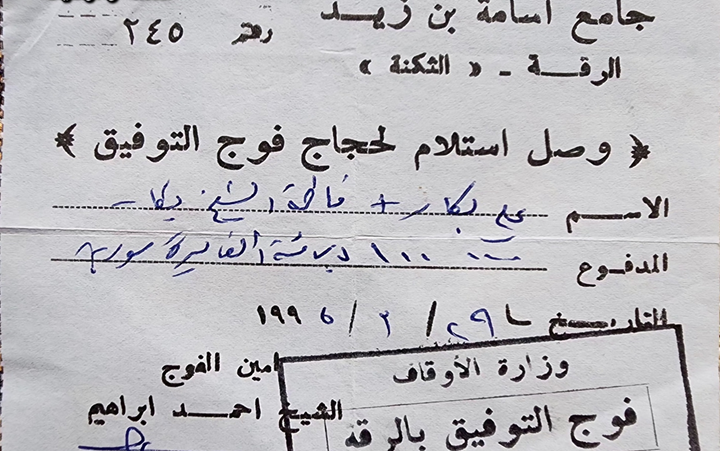 جامع أسامة بن زيد
رقم ٢٤٥
الرقـــة ـ « الثكنة »
﴿ وصل استلام لحجاج فوج التوفيق ﴾
الاســـم علي بكار + فاطمة الشيخ بكار
المدفوع ١٠٠٠٠٠ مئة الف ليرة سورية
التاريـــخ ٢٩ / ٢ / ١٩٩٦
امين الفوج
الشيخ احمـــد ابراهيم
وزارة الأوقاف
فوج التوفيق بالرقه